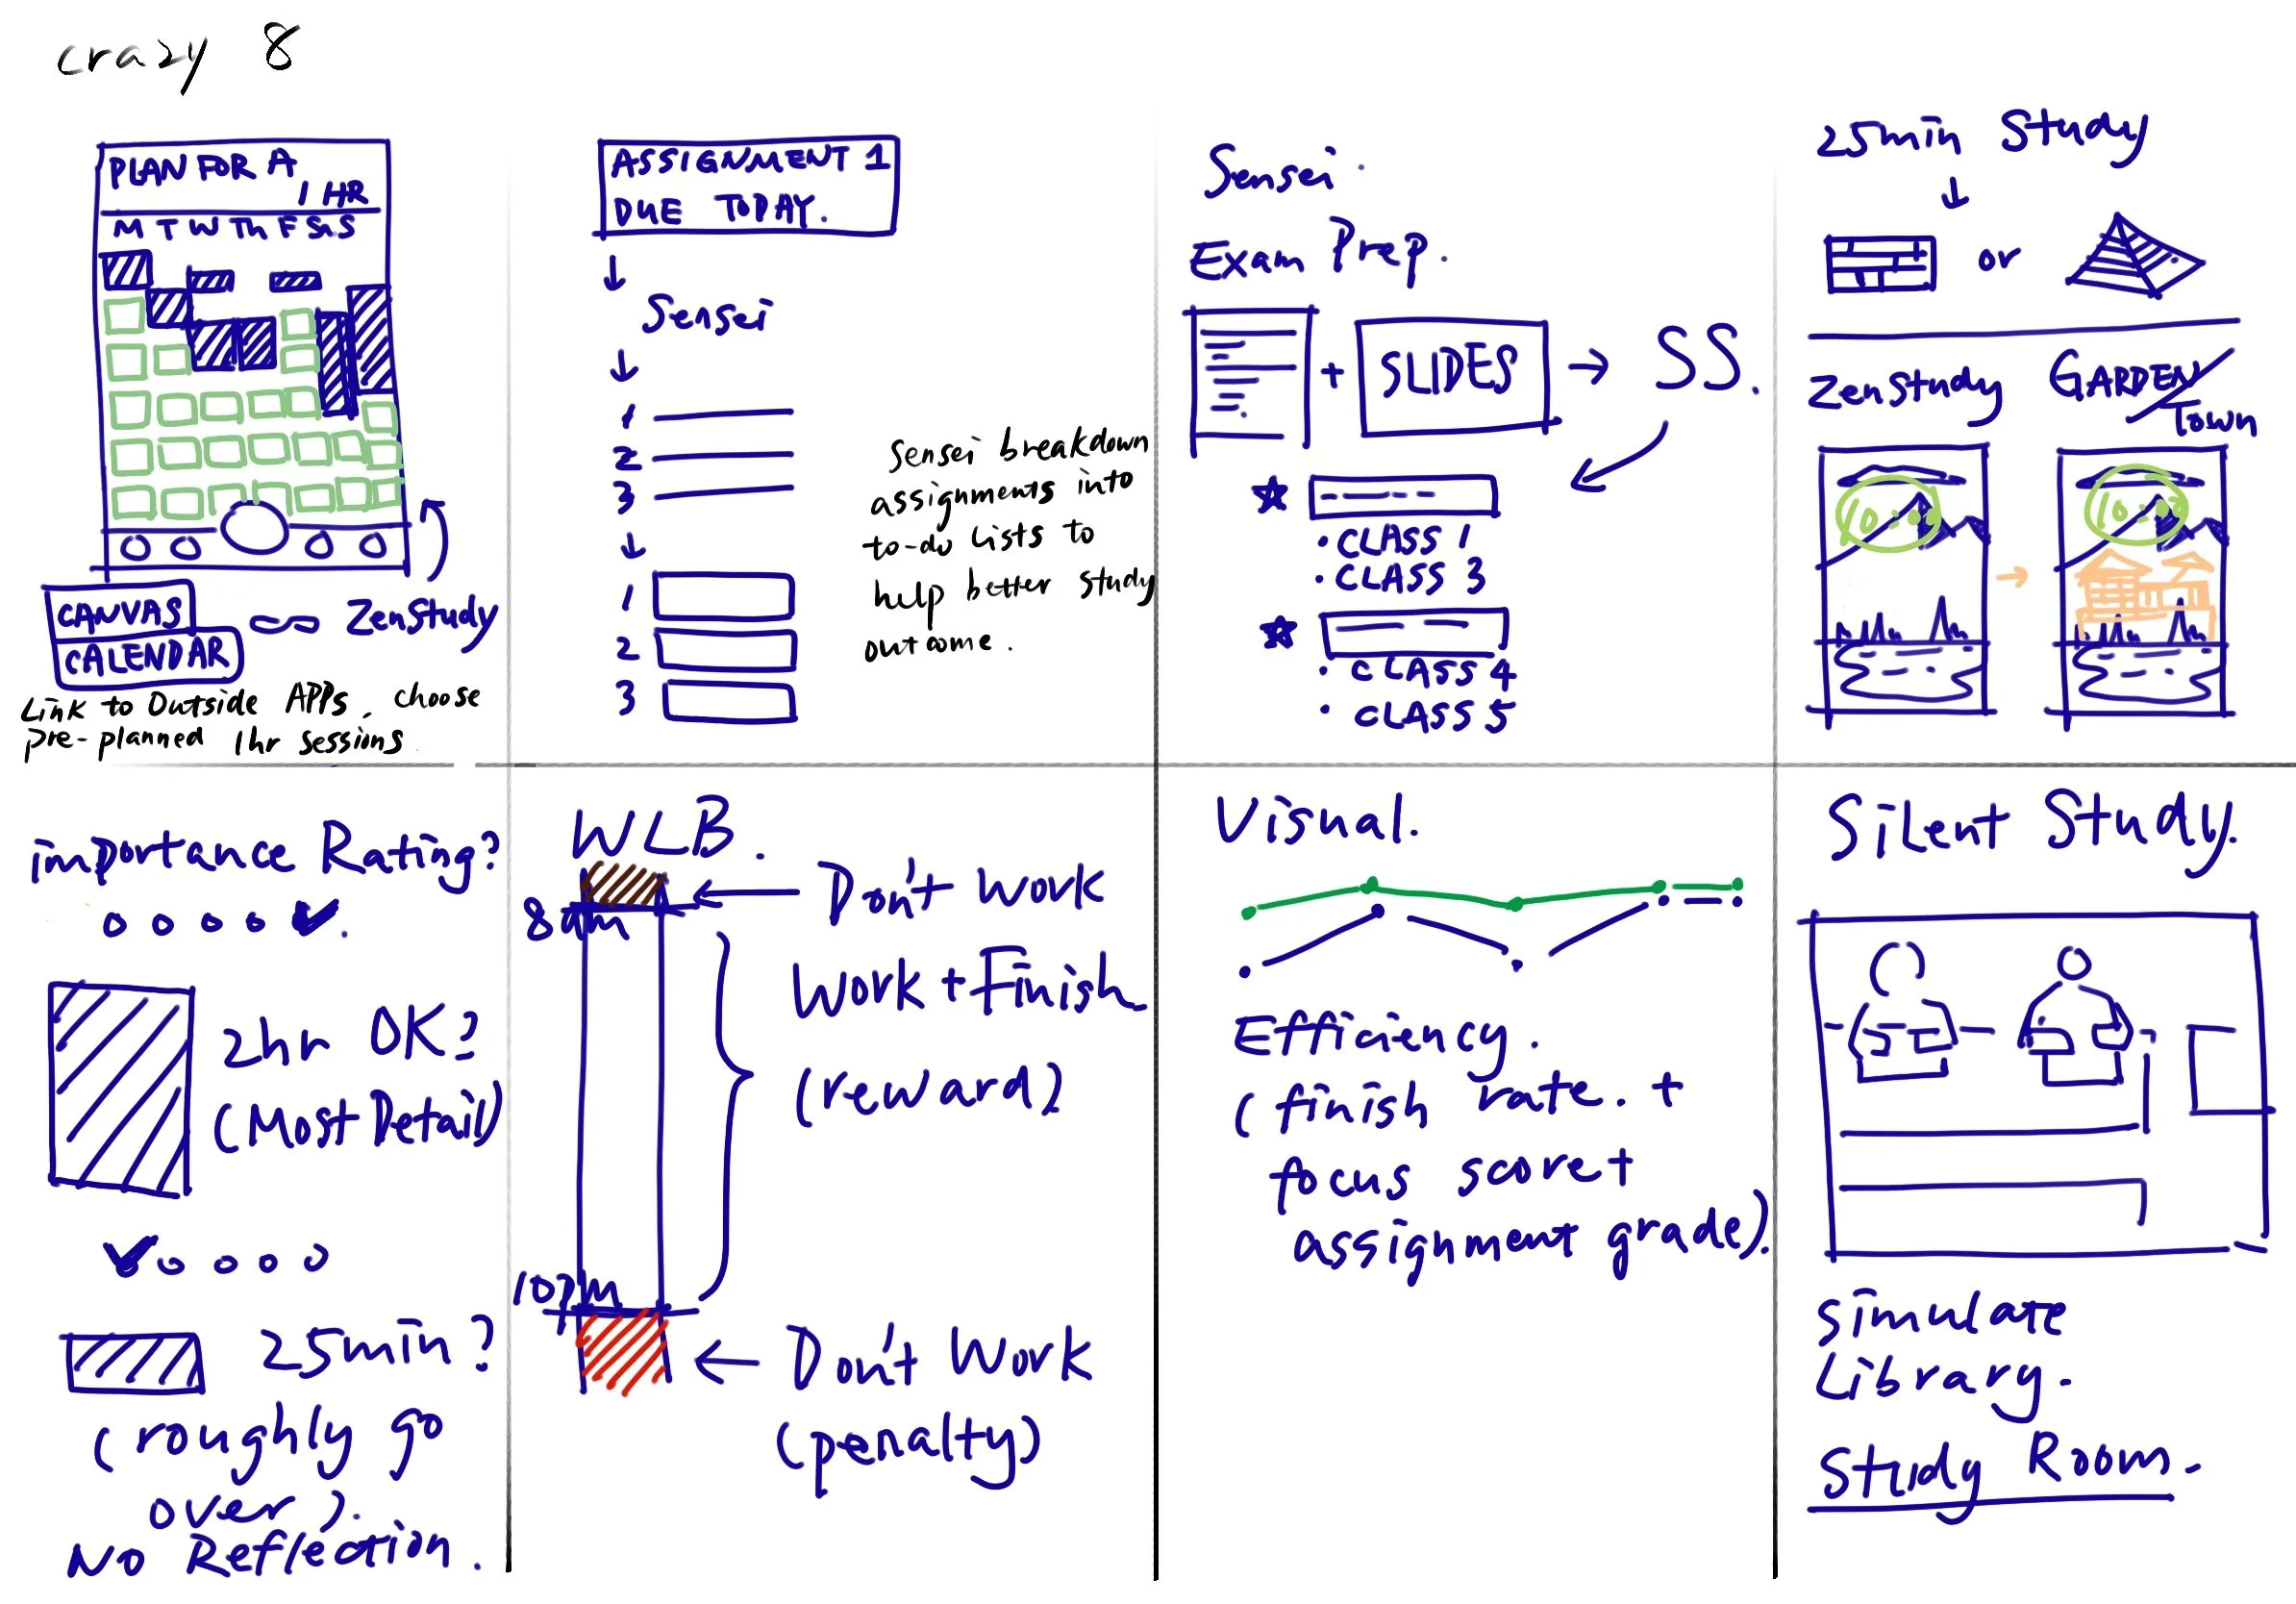 crazy 8
PLAN FOR A
1 HR
M T W Th F Sa S
CANVAS
CALENDAR
ZenStudy
Link to Outside APPs, choose
pre-planned 1hr sessions
ASSIGNMENT 1
DUE TODAY.
Sensei
1
2
3
1
2
3
Sensei breakdown
assignments into
to-do Lists to
help better study
outcome.
Sensei
Exam Prep.
+ SLIDES → SS.
• CLASS 1
• CLASS 3
• CLASS 4
• CLASS 5
25min Study
or
ZenStudy GARDEN/
Town
10:00
10:00
importance Rating?
2hr OK?
(Most Detail)
25min?
(roughly go
over).
No Reflection.
WLB.
8am
Don't Work
Work + Finish
(reward)
10pm
Don't Work
(penalty)
Visual.
Efficiency.
(finish rate. +
focus score +
assignment grade).
Silent Study.
simulate
Library.
Study Room.